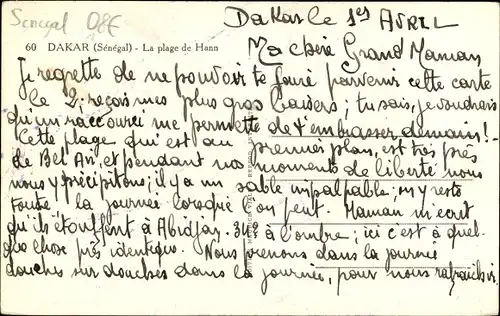 Sénégal
Dakar le 1er AVRIL
60 DAKAR (Sénégal) - La plage de Hann
Ma chère Grand Maman
Je regrette de ne pouvoir te faire parvenir cette carte
le 2; reçois mes plus gros baisers; tu sais, je voudrais
qu'un raccourci me permette de t'embrasser demain!
Cette plage qui est au premier plan, est très près
de Bel Air, et pendant nos moments de liberté nous
nous y précipitons; il y a un sable impalpable; on y reste
toute la journée lorsque l'on peut. Maman m'écrit
qu'ils étouffent à Abidjan. 34° à l'ombre; ici c'est à quel-
que chose près identique. Nous prenons dans la journée
douches sur douches dans la journée, pour nous rafraîchir.